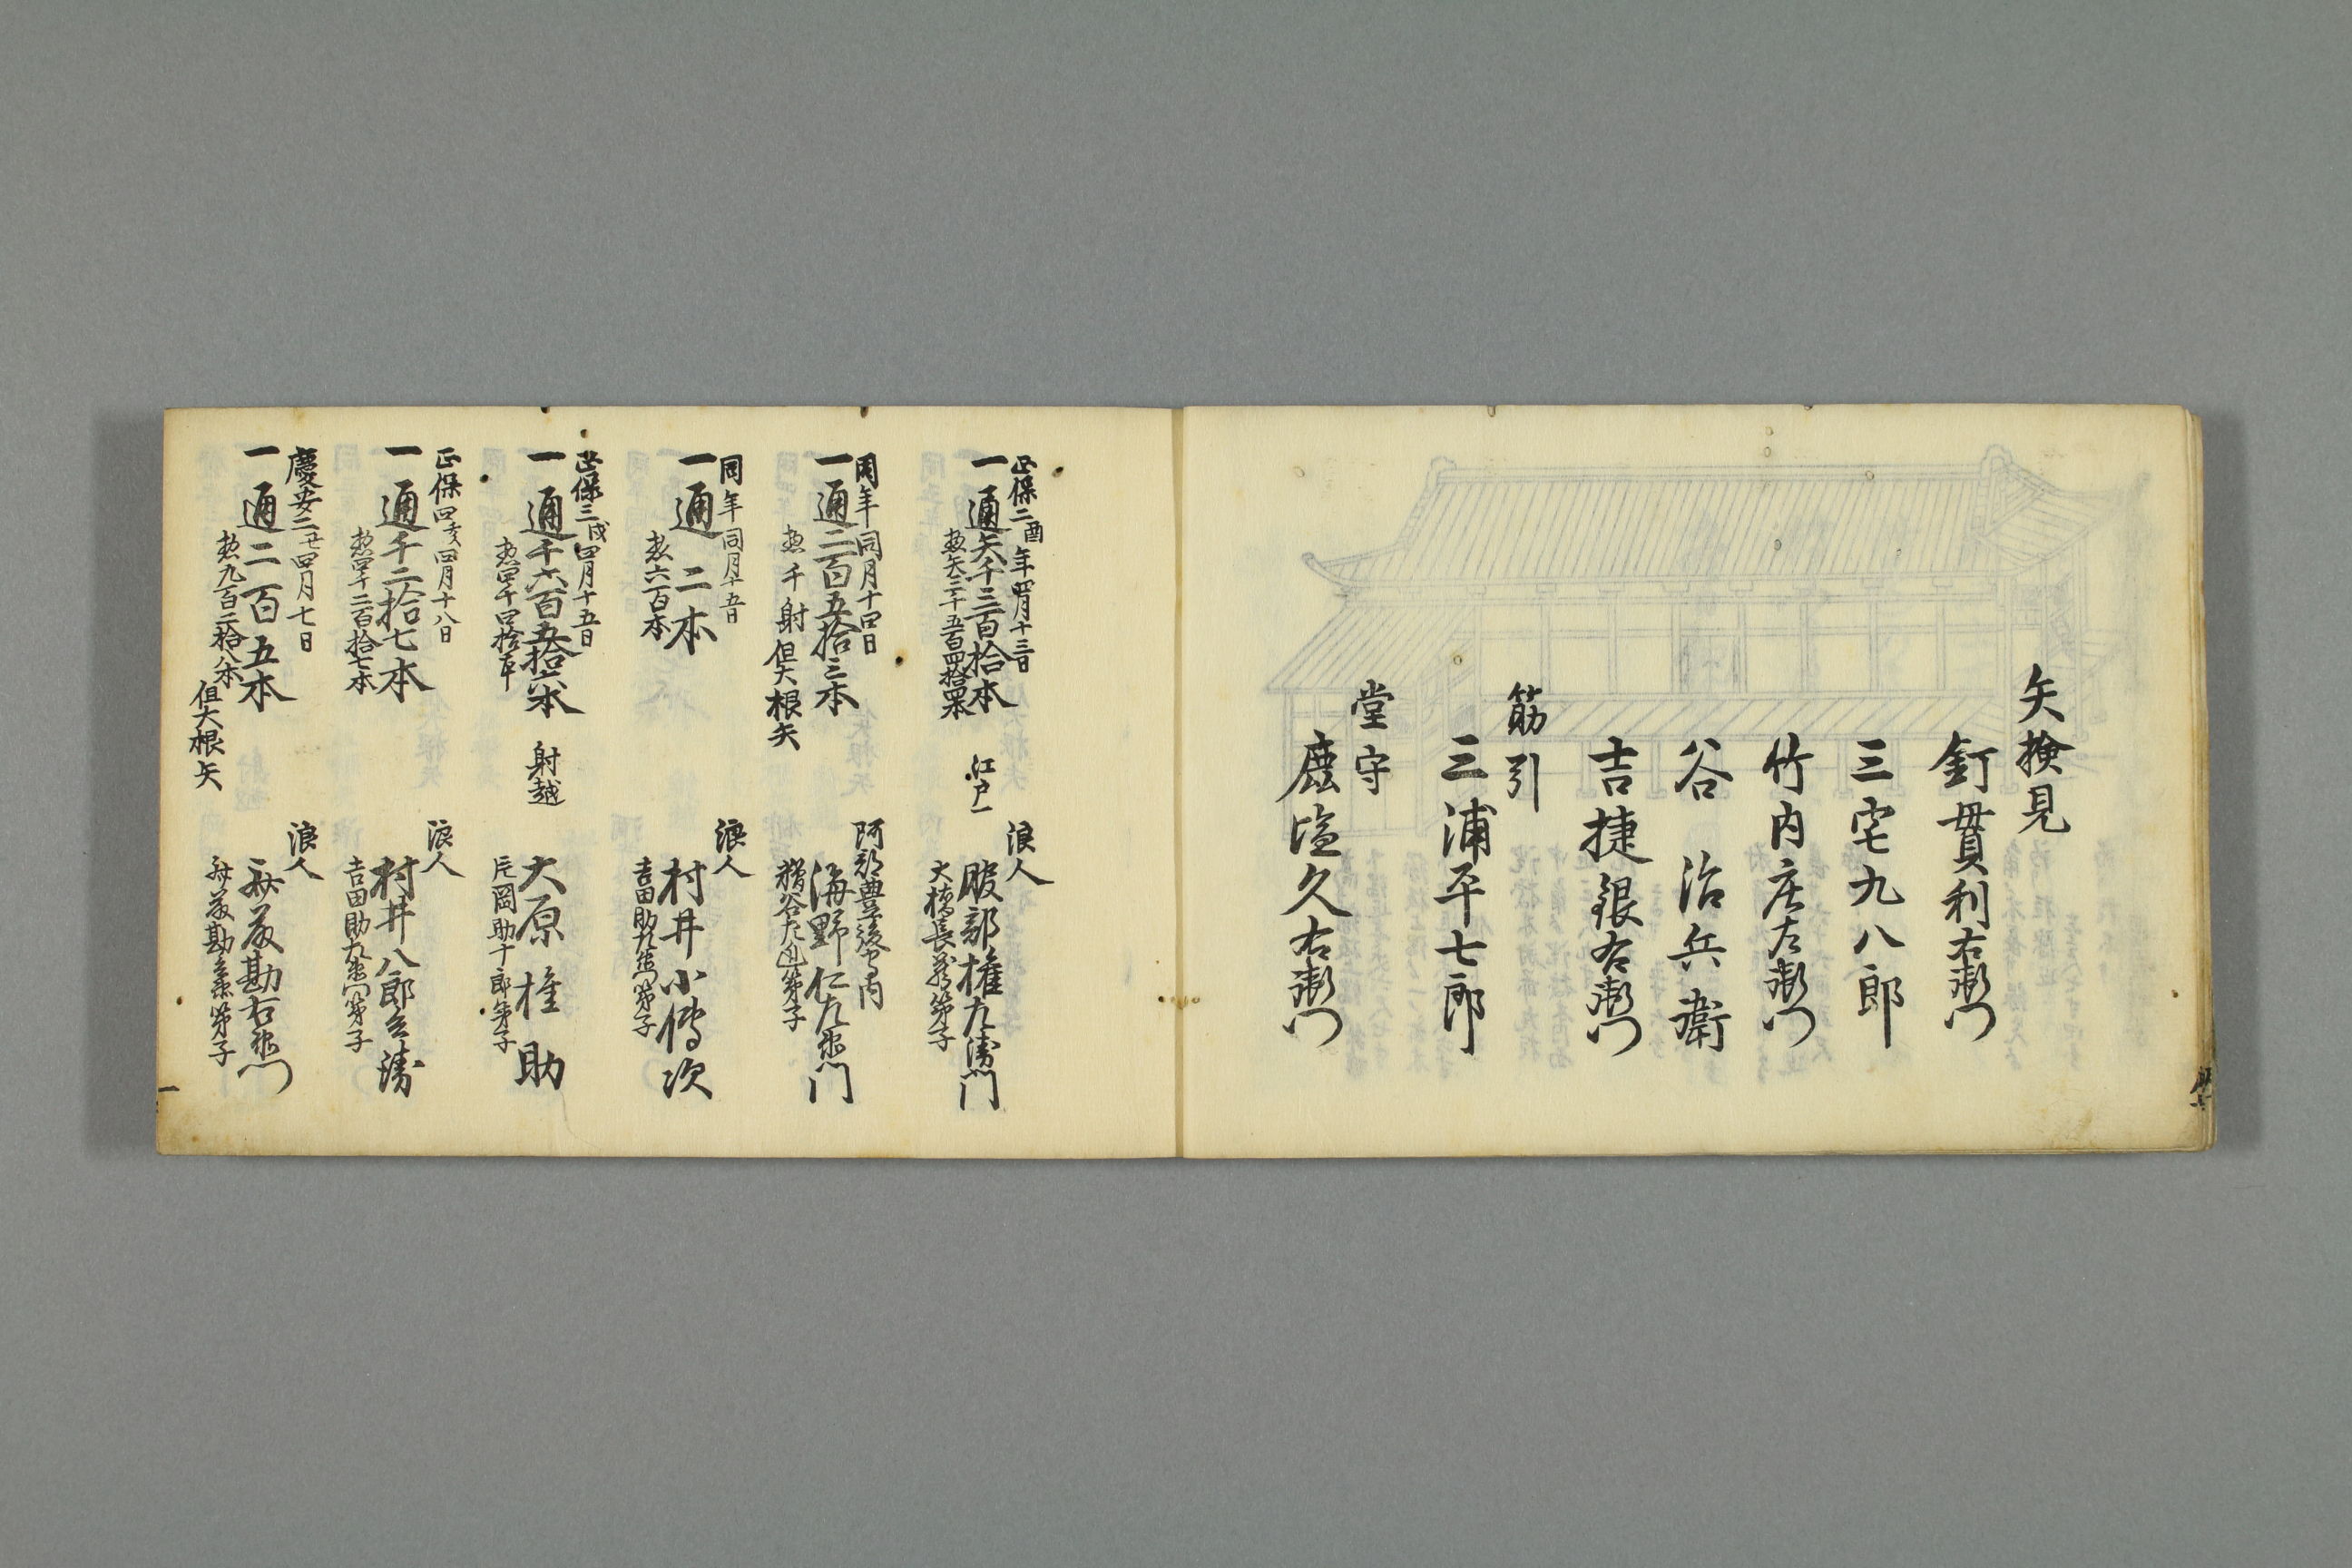 矢検見
釘貫利右衛門
三宅九八郎
竹内庄左衛門
谷治兵衛
吉捷銀右衛門
筋引
三浦平七郎
堂守
鹿塩久右衛門
正保二酉年四月十三日
一通矢千三百拾本
惣矢三千五百四拾四本
江戸一
浪人
服部権左衛門
大橋長蔵弟子
同年同月十四日
一通二百五拾三本
惣千射但大根矢
阿部豊後守内
海野仁左衛門
糟谷左近弟子
同年同月十五日
一通二本
惣六百本
浪人
村井小傳次
吉田助左衛門弟子
正保三戌四月十五日
一通千六百五拾六本
惣四千四拾本
射越
大原権助
片岡助十郎弟子
正保四亥四月十八日
一通千二拾七本
惣四千二百拾七本
浪人
村井八郎兵衛
吉田助左衛門弟子
慶安二丑四月七日
一通二百五本
惣九百二拾八本
但大根矢
浪人
勘右衛門
弟子